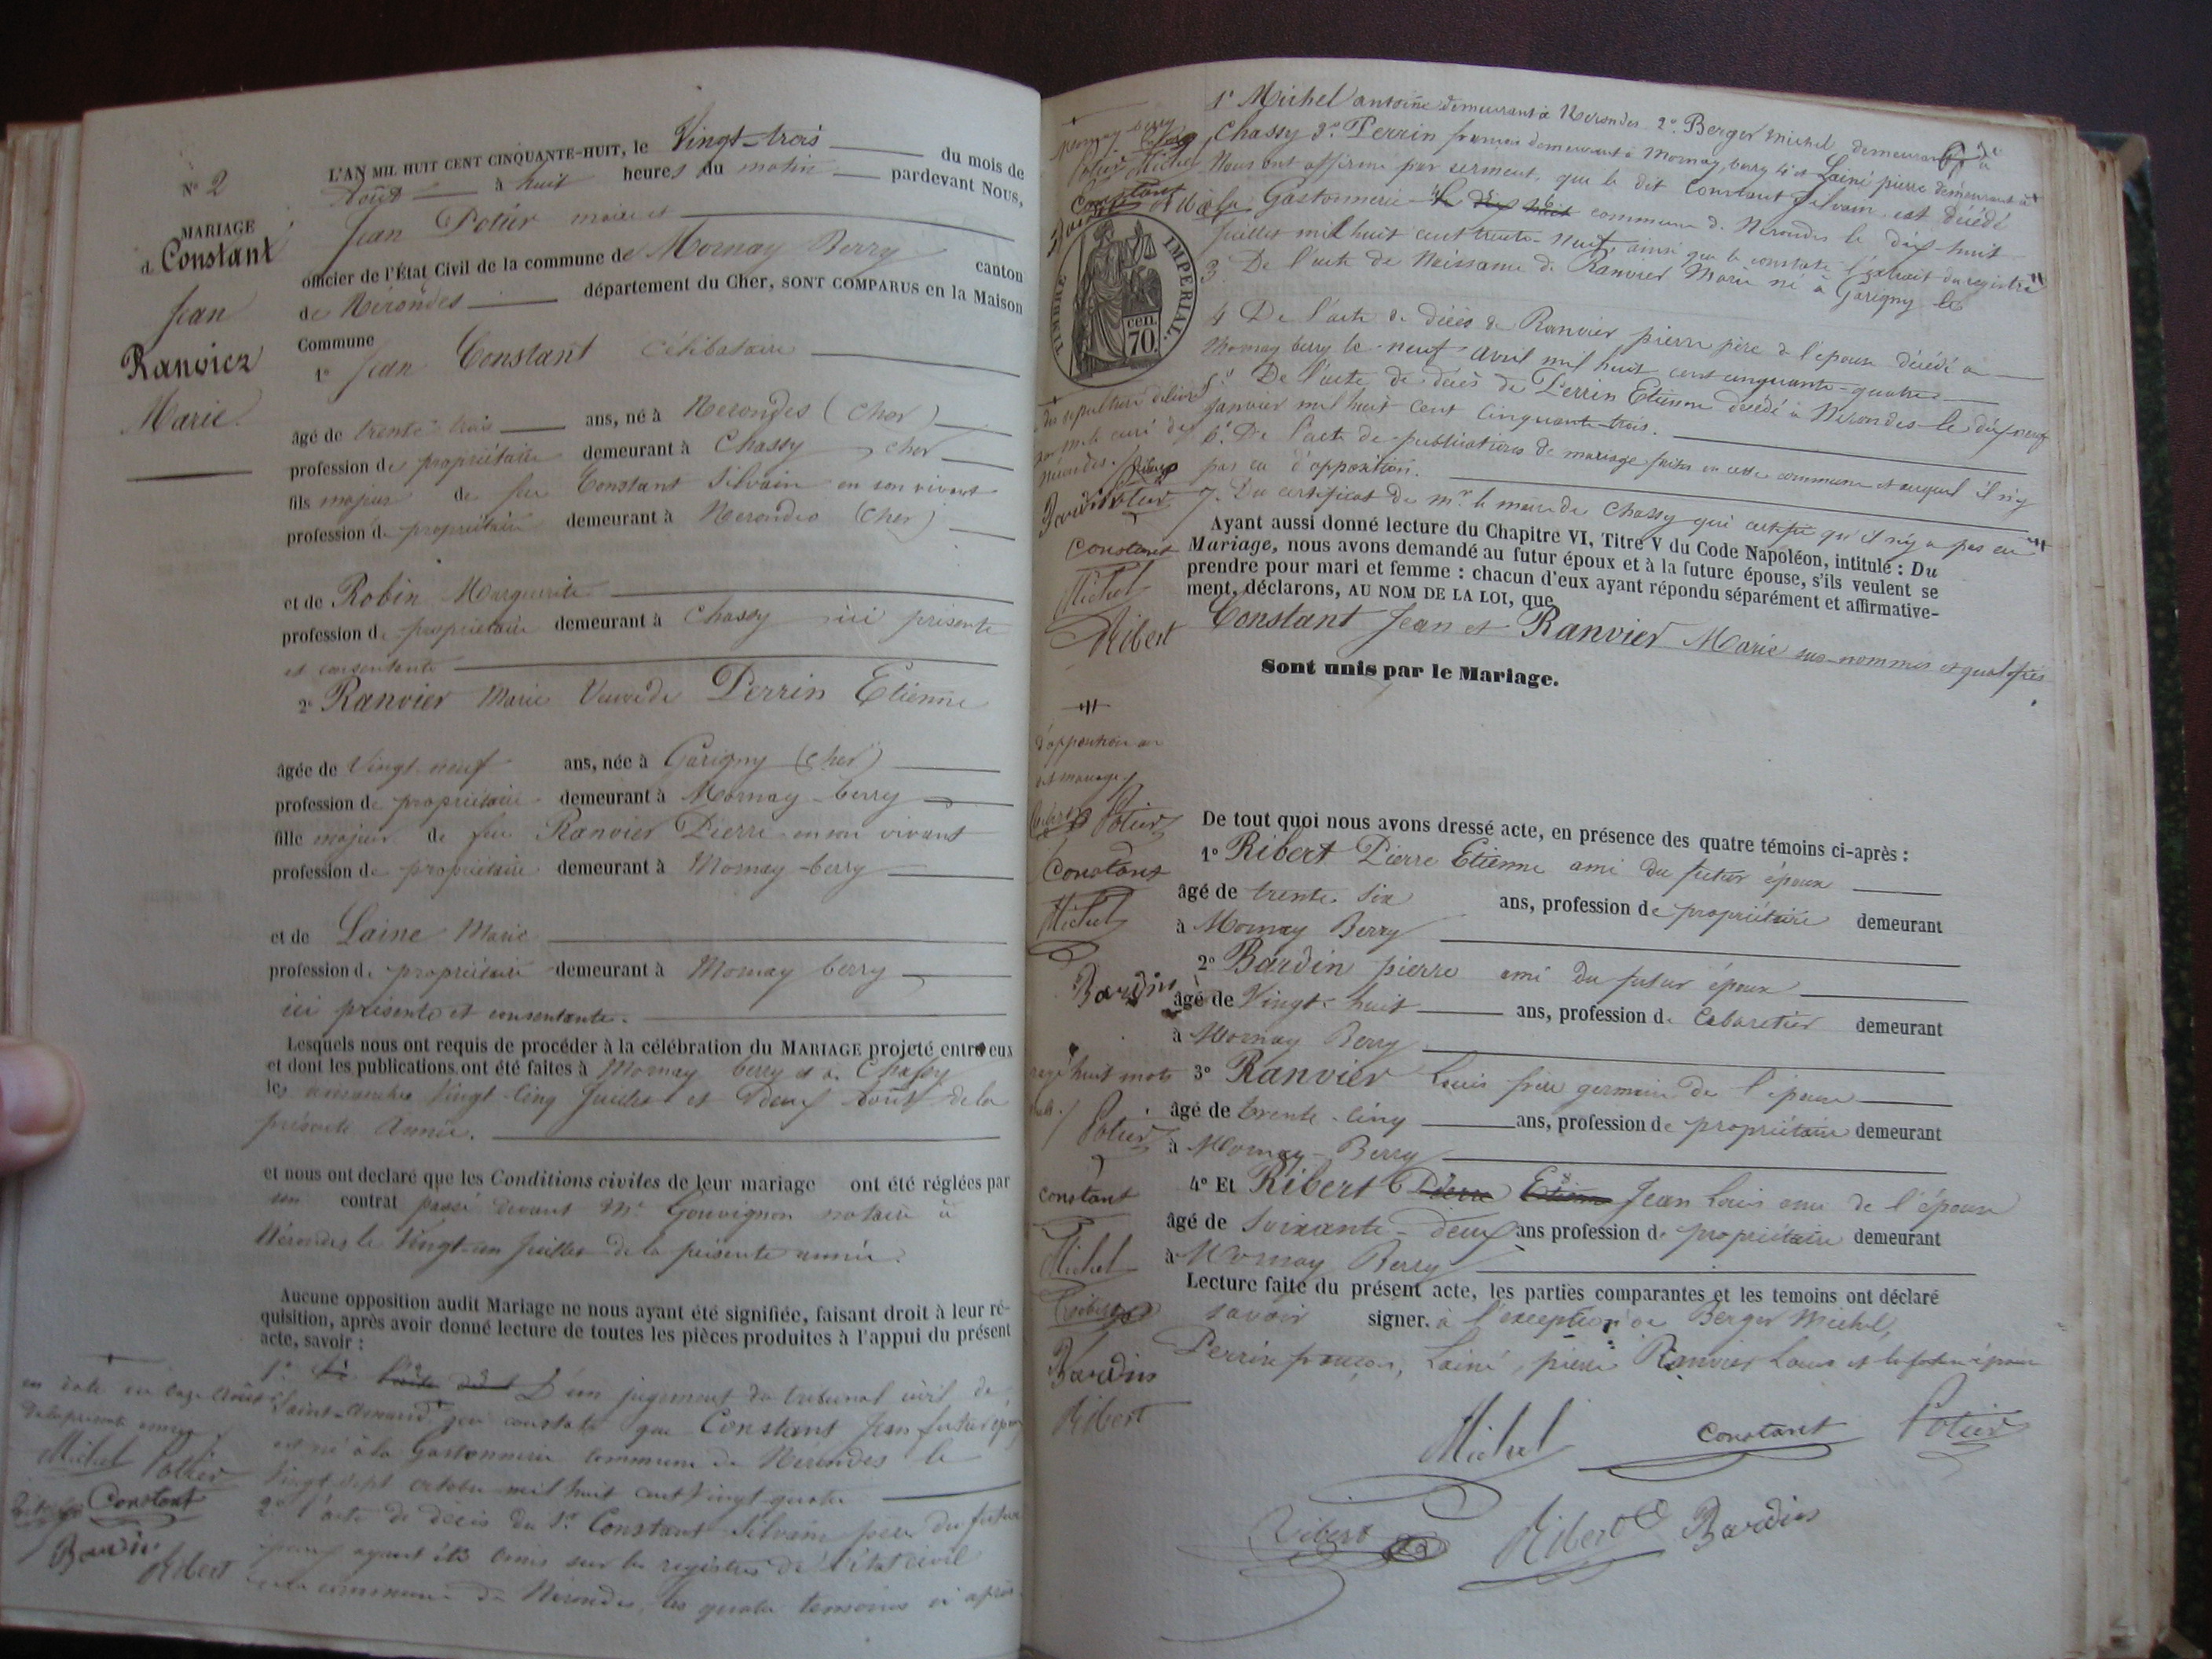 N° 2
MARIAGE
d. Constant
Jean
Ranvier
Marie
L'AN MIL HUIT CENT CINQUANTE-HUIT, le Vingt-trois du mois de
Août à huit heures du matin pardevant NOUS,
Jean Potier maire et
officier de l'État Civil de la commune de Mornay Berry canton
de Nérondes département du Cher, SONT COMPARUS en la Maison
Commune
1° Jean Constant célibataire
âgé de trente trois ans, né à Nerondes (Cher)
profession de propriétaire demeurant à Chassy, cher
fils majeur de feu Constant Silvain en son vivant
profession de propriétaire demeurant à Nerondes (Cher)
et de Robin Marguerite
profession de propriétaire demeurant à Chassy ici présente
et consentente
2° Ranvier Marie Veuve de Perrin Etienne
âgée de Vingt neuf ans, née à Garigny (cher)
profession de propriétaire demeurant à Mornay-berry
fille majeur de feu Ranvier Pierre en son vivant
profession de propriétaire demeurant à Mornay-berry
et de Laine Marie
profession de propriétaire demeurant à Mornay berry
ici présente et consentante.
Lesquels nous ont requis de procéder à la célébration du MARIAGE projeté entre eux
et dont les publications ont été faites à Mornay berry et à Chassy
les dimanches Vingt-cinq Juillet et Deux Août de la
présente Année.
et nous ont declaré que les Conditions civiles de leur mariage ont été réglées par
un contrat passé devant Mr Gouvignon notaire à
Nérondes le Vingt-un Juillet de la présente année.
Aucune opposition audit Mariage ne nous ayant été signifiée, faisant droit à leur ré-
quisition, après avoir donné lecture de toutes les pièces produites à l'appui du présent
acte, savoir :
1° D'un jugement du tribunal civil de
Saint-Amand, qui constate que Constant Jean futur époux
est né à la Gastonnerie commune de Nérondes le
Vingt sept octobre mil huit cent vingt quatre
2° l'acte de décès du Sr Constant Silvain père du futur
époux ayant été omis sur les registres de l'état civil
de la commune de Nerondes, les quatre temoins ci après
en date du onze Août
de la présente année
Michel Potier
Constant
Bardin
Ribert
1° Michel antoine demeurant à Nerondes 2° Berger Michel, demeurant à
Chassy 3° Perrin francois demeurant à Mornay berry 4° et Lainé pierre demeurant à
Nous ont affirmé par serment, que le dit Constant Silvain est décédé
à la Gastonnerie commune de Nerondes le dix-huit
Juillet mil huit cent trente-neuf, ainsi que le constate l'extrait du registre
3 De l'acte de Naissance de Ranvier Marie né à Garigny le
4 De l'acte de décès de Ranvier pierre père de l'épouse décédé à
Mornay berry le neuf avril mil huit cent cinquante-quatre
5° De l'acte de décès de Perrin Etienne décédé à Nerondes le dix-neuf
Janvier mil huit cent Cinquante-trois.
6° De l'acte de publications de mariage faites en cette commune et auquel il n'y
pas eu d'opposition.
7. Du certificat de mr le maire de Chassy qui certifie qu'il n'y a pas eu
Ayant aussi donné lecture du Chapitre VI, Titre V du Code Napoléon, intitulé : Du
Mariage, nous avons demandé au futur époux et à la future épouse, s'ils veulent se
prendre pour mari et femme : chacun d'eux ayant répondu séparément et affirmative-
ment, déclarons, AU NOM DE LA LOI, que
Constant Jean et Ranvier Marie sus-nommés et qualifiés
Sont unis par le Mariage.
De tout quoi nous avons dressé acte, en présence des quatre témoins ci-après :
1° Ribert Pierre Etienne ami du futur époux
âgé de trente six ans, profession de propriétaire demeurant
à Mornay Berry
2° Bardin pierre ami du futur époux
âgé de Vingt-huit ans, profession de Cabaretier demeurant
à Mornay Berry
3° Ranvier Louis frère germain de l'épouse
âgé de trente-cinq ans, profession de propriétaire demeurant
à Mornay-Berry
4° Et Ribert Pierre Etienne Jean Louis ami de l'épouse
âgé de soixante-deux ans profession de propriétaire demeurant
à Mornay Berry
Lecture faite du présent acte, les parties comparantes et les temoins ont déclaré
savoir signer. à l'exception de Berger Michel,
Perrin françois, Lainé pierre Ranvier Louis et la future épouse
Michel Constant Potier
Ribert Ribert Bardin
mornay berry
Potier Michel
Constant Ribert
TIMBRE IMPÉRIAL.
cen.
70.
de sepulture délivré
par mr le curé de
Nérondes.
Bardin Potier
Constant
Michel
Ribert
d'opposition au
dit mariage
Potier
Constant
Michel
Bardin
rayé huit mots
nuls.
Potier
Constant
Michel
Ribert
Bardin
Ribert